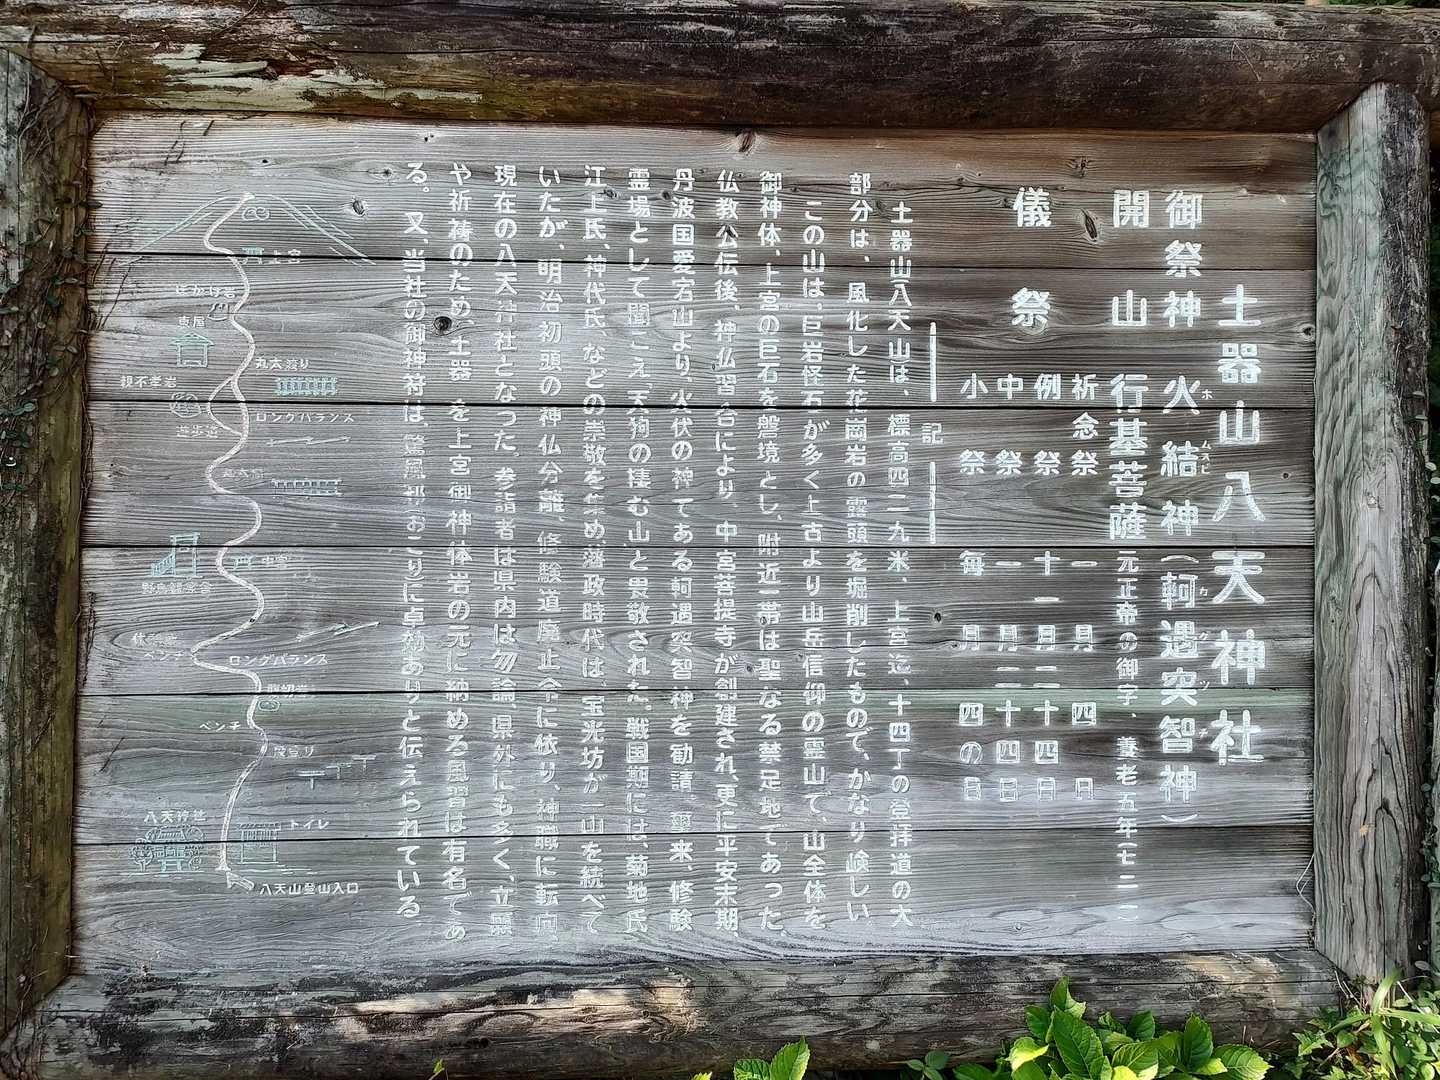 土器山八天神社
御祭神 火結神(軻遇突智神)
ホ ムスビ カグツチ
開山 行基菩薩 元正帝の御宇、養老五年(七二一)
儀祭 祈念祭 一月四日
例祭 十一月二十四日
中祭 一月二十四日
小祭 毎月四の日
記
土器山八天山は、標高四二九米、上宮迄、十四丁の登拝道の大
部分は、風化した花崗岩の露頭を堀削したもので、かなり嶮しい
この山は、巨岩怪石が多く上古より山岳信仰の霊山で、山全体を
御神体、上宮の巨石を磐境とし、附近一帯は聖なる禁足地であった
仏教公伝後、神仏習合により、中宮菩提寺が創建され、更に平安末期
丹波国愛宕山より、火伏の神である軻遇突智神を勧請 来、修験
霊場として聞こえ天狗の棲む山と畏敬された。戦国期には、菊地氏
江上氏、神代氏、などの崇敬を集め、藩政時代は、宝光坊が一山を統べて
いたが、明治初頭の神仏分離、修験道廃止令に依り、神職に転向、
現在の八天神社となった。参詣者は県内は勿論、県外にも多く、立願
や祈祷のため(土器 を上宮御神体岩の元に納める風習は有名であ
る。又、当社の御神符は、驚風 おこりに卓効ありと伝えられている。
上宮
ぼかげ岩
鳥居
丸太渡り
親不孝岩
ロングバランス
遊歩道
丸太
中宮
野鳥観察舎
休
ベンチ
ロングバランス
ベンチ
八天神社
トイレ
八天山登山入口